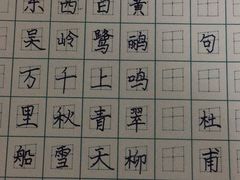 句 杜甫
黄鹂鸣翠柳
白鹭上青天
西岭千秋雪
东吴万里船